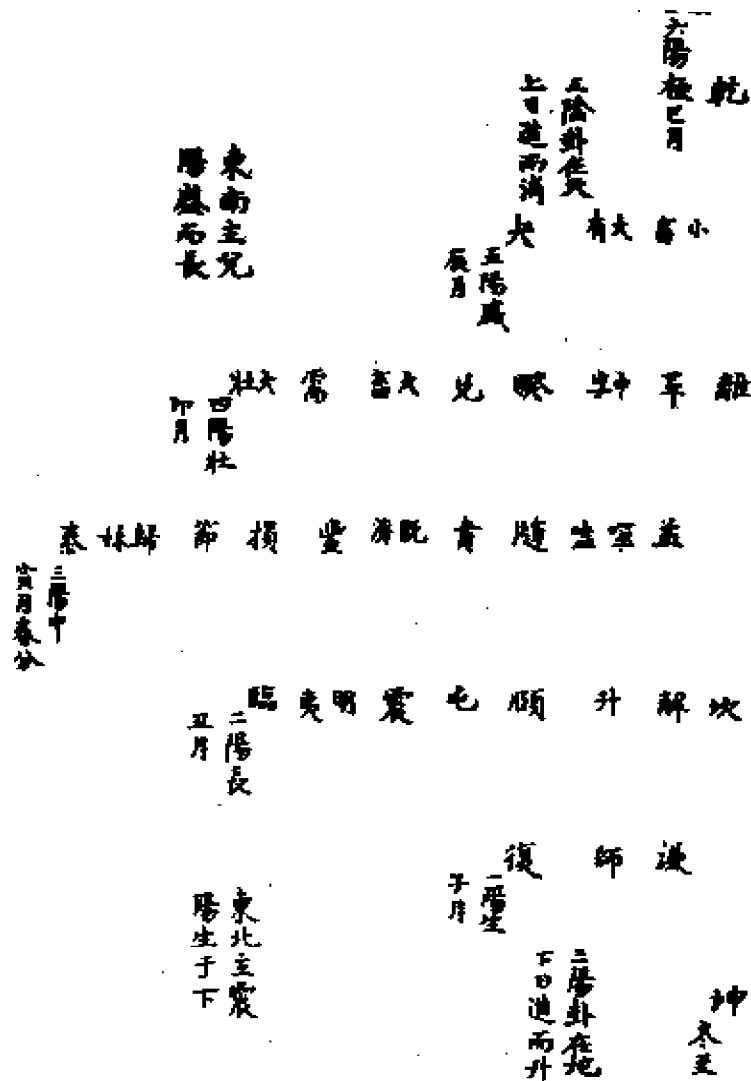 乾
六陽極巳月
三陰卦在天
上日進而消
東南主兌
陽盛而長
小畜 大有 夬
五陽盛
辰月
離 革 中孚 睽 兌 大畜 需 大壯
四陽壯
卯月
益 噬嗑 隨 賁 既濟 豐 損 節 歸妹 泰
三陽中
寅月春分
坎 解 升 頤 屯 震 明夷 臨
二陽長
丑月
謙 師 復
一陽生
子月
東北主震
陽生于下
坤
冬至
三陽卦在地
下日進而升